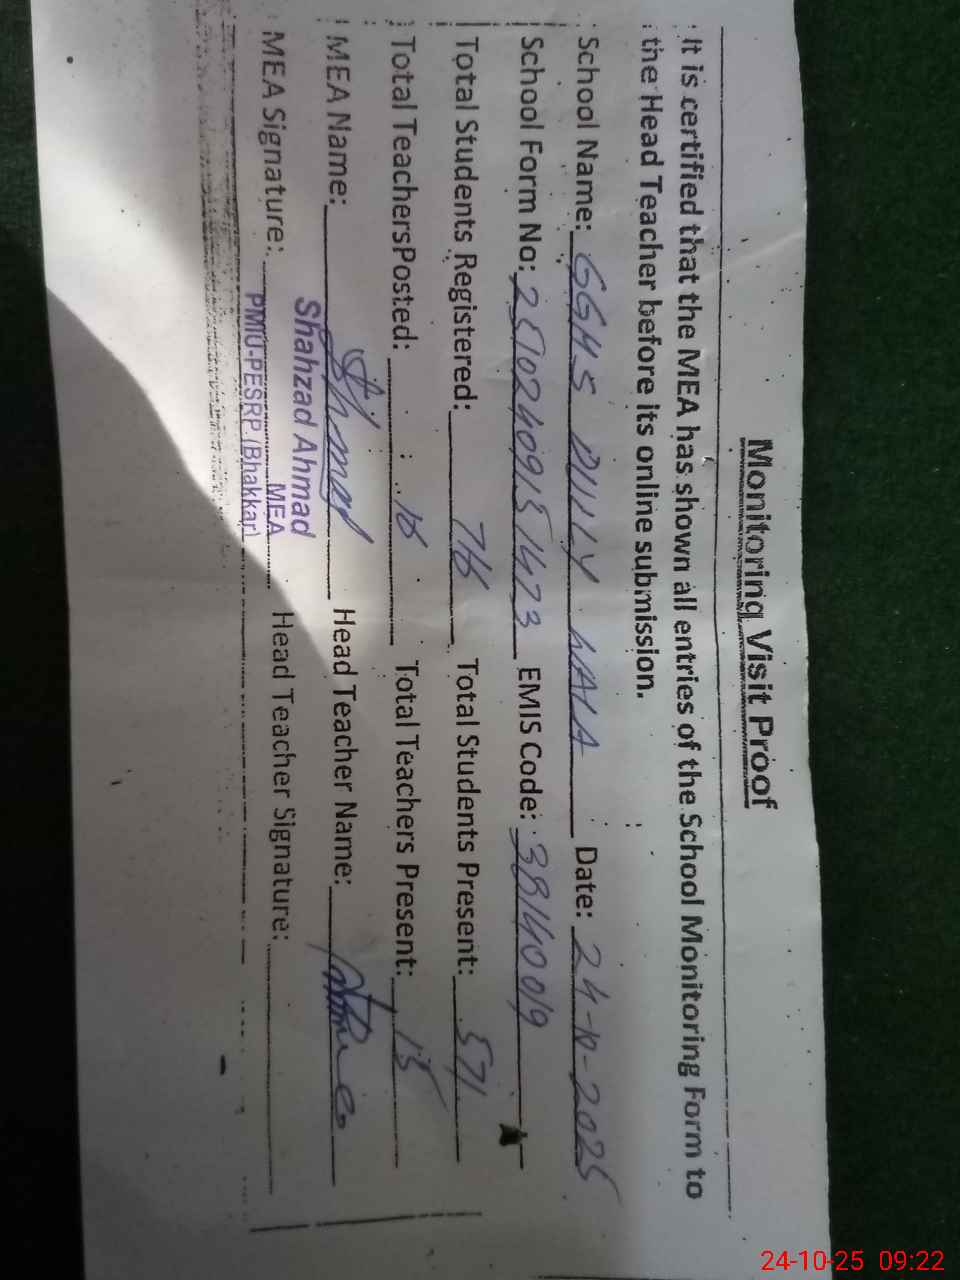 Monitoring Visit Proof
It is certified that the MEA has shown all entries of the School Monitoring Form to
the Head Teacher before its online submission.
School Name: GGHS DULLY WALA Date: 24-10-2025
School Form No: EMIS Code: 38140019
Total Students Registered: 716 Total Students Present: 571
Total TeachersPosted: 16 Total Teachers Present: 15
MEA Name: Head Teacher Name:
Shahzad Ahmad
MEA
MEA Signature: Head Teacher Signature:
PMIU-PESRP (Bhakkar)
24-10-25 09:22